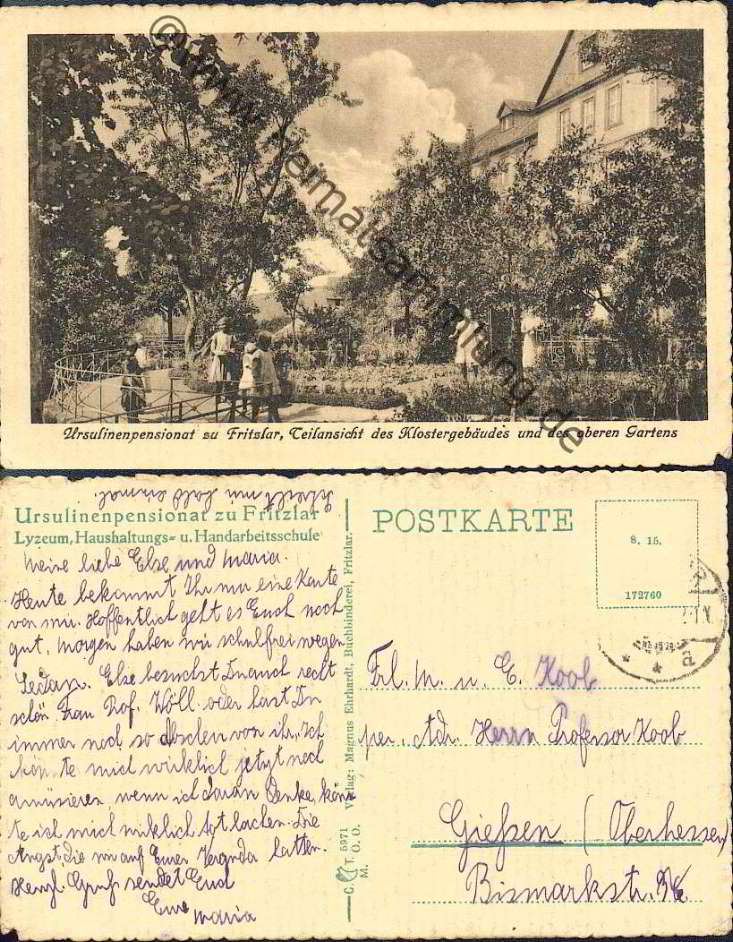 © www.heimatsammlung.de
Ursulinenpensionat zu Fritzlar, Teilansicht des Klostergebäudes und des oberen Gartens
Schreibt mir bald einmal.
Ursulinenpensionat zu Fritzlar
Lyzeum, Haushaltungs- u. Handarbeitsschule
Meine liebe Else und Maria.
Heute bekommt Ihr nur eine Karte
von mir. Hoffentlich geht es Euch noch
gut. Morgen haben wir schulfrei wegen
Sedan. Else besuchst Du auch recht
schön Frau Prof. Wöll. oder hast Du
immer noch so von ihr, Ich
könnte mich wirklich jetzt noch
amüsieren, wenn ich daran denke, könn
te ich mich wirklich tot lachen. Die
Angst die wir auf Eurer Veranda hatten.
Herzl. Gruß sendet Euch
Eure
Maria
C. T. O. O. 5971
M.
Verlag: Magnus Ehrhardt, Buchbinderei, Fritzlar.
POSTKARTE
8. 15.
172760
Frl. M. u. E. Koob
per. Adr. Herrn Professor Koob
Gießen (Oberhessen)
Bismarkstr.